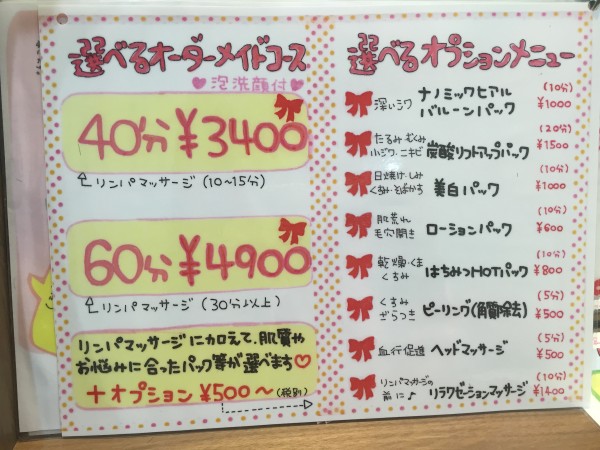 選べるオーダーメイドコース
♥泡洗顔付♥
40分¥3400
リンパマッサージ(10~15分)
60分¥4900
リンパマッサージ(30分以上)
リンパマッサージに加えて、肌質や
お悩みに合ったパック等が選べます♡
+オプション ¥500~(税別)
選べるオプションメニュー
深いシワ ナノミックヒアル
バルーンパック (10分) ¥1000
たるみ・むくみ
小ジワ・ニキビ 炭酸リフトアップパック (20分) ¥1500
日焼け・しみ
くすみ・そばかす 美白パック (10分) ¥1000
肌荒れ
毛穴開き ローションパック (10分) ¥600
乾燥・くま
くすみ はちみつHOTパック (10分) ¥800
くすみ
ざらつき ピーリング(角質除去) (5分) ¥500
血行促進 ヘッドマッサージ (5分) ¥500
リンパマッサージの
前に♪ リラクゼーションマッサージ (10分) ¥1400